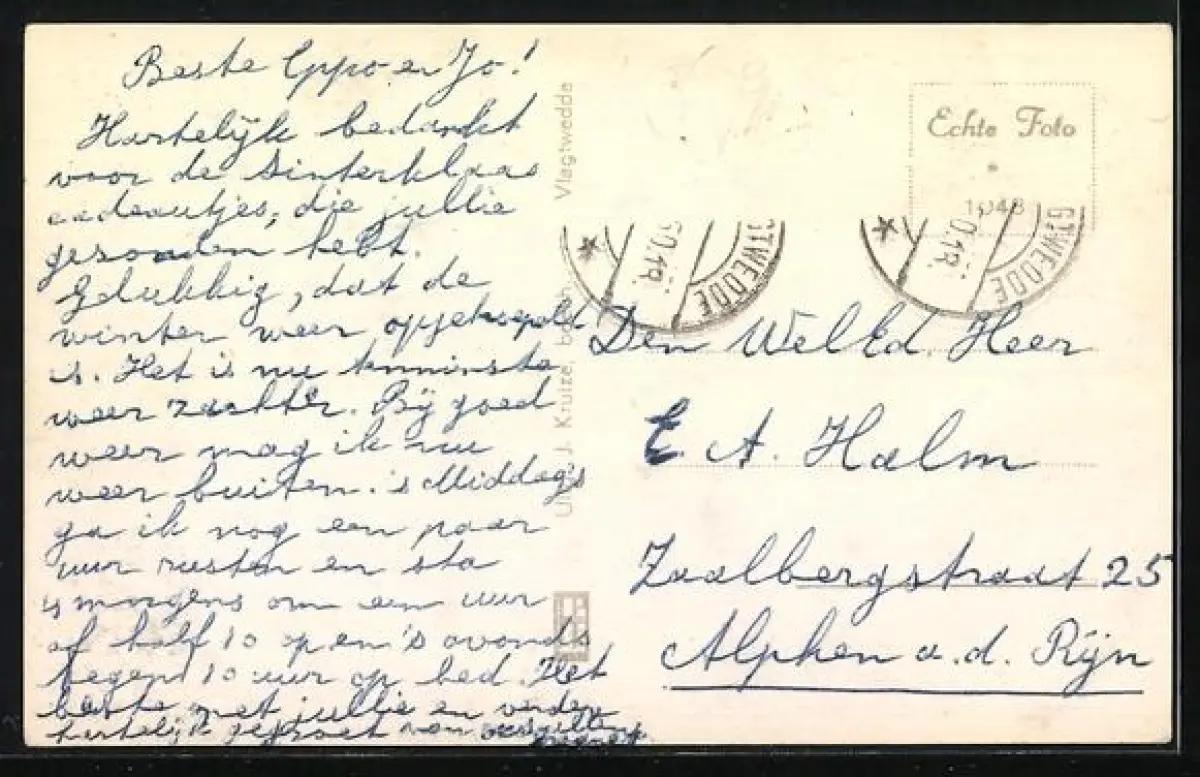 Beste Eppo en Jo!
Hartelijk bedankt
voor de Sinterklaas
cadeautjes, die jullie
gezonden hebt.
Gelukkig, dat de
winter weer opgehoepeld
is. Het is nu tenminste
weer zachter. Bij goed
weer mag ik nu
weer buiten. 's Middag's
ga ik nog een paar
uur rusten en sta
's morgens om een uur
of half 10 op en 's avonds
tegen 10 uur op bed. Het
beste met jullie en verder
hartelijk gegroet van
Vlagtwedde
J. Kruize,
Echte Foto
1948
GTWEDDE
GTWEDDE
Den WelEd. Heer
E. A. Halm
Zaalbergstraat 25
Alphen a.d. Rijn